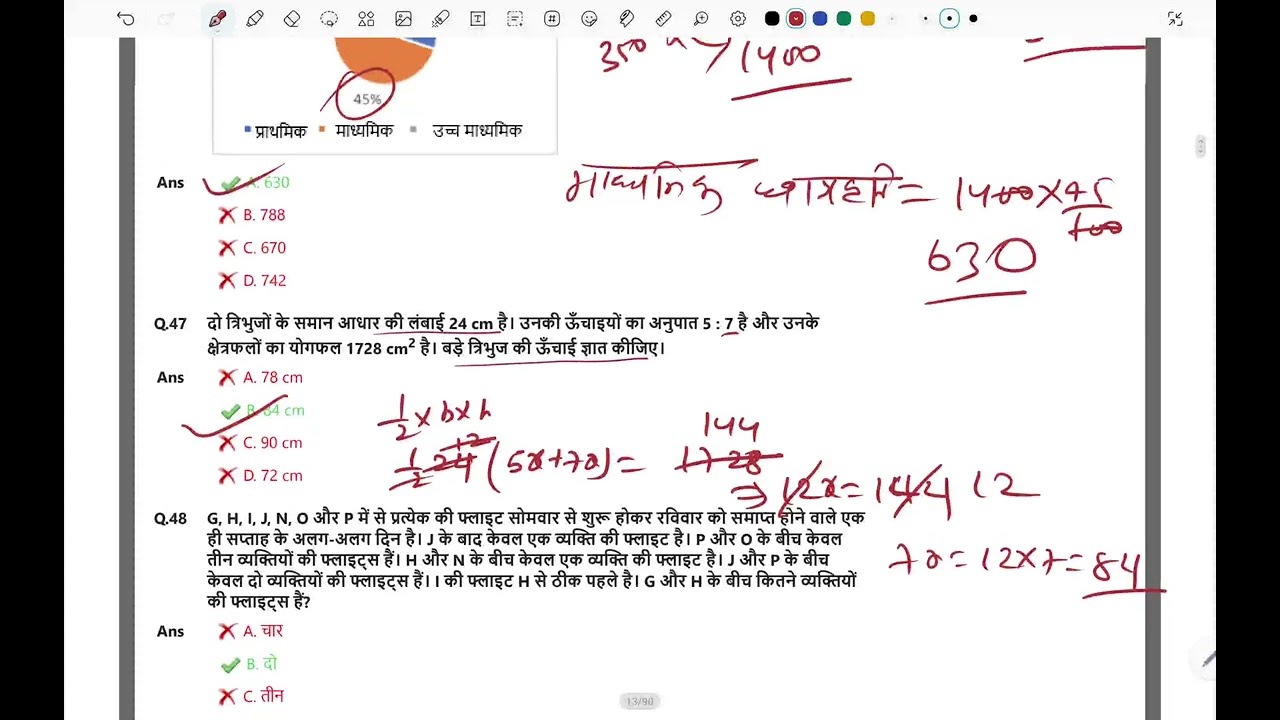 350
1400
45%
प्राथमिक माध्यमिक उच्च माध्यमिक
माध्यमिक = 1400 × 45
100
630
Ans A. 630
B. 788
C. 670
D. 742
Q.47 दो त्रिभुजों के समान आधार की लंबाई 24 cm है। उनकी ऊँचाइयों का अनुपात 5 : 7 है और उनके
क्षेत्रफलों का योगफल 1728 cm² है। बड़े त्रिभुज की ऊँचाई ज्ञात कीजिए।
Ans A. 78 cm
B. 84 cm
C. 90 cm
D. 72 cm
1/2 × b × h
12 144
1/2 24 (5x+7x) = 1728
⇒ 12x = 144 12
7x = 12×7 = 84
Q.48 G, H, I, J, N, O और P में से प्रत्येक की फ्लाइट सोमवार से शुरू होकर रविवार को समाप्त होने वाले एक
ही सप्ताह के अलग-अलग दिन है। J के बाद केवल एक व्यक्ति की फ्लाइट है। P और O के बीच केवल
तीन व्यक्तियों की फ्लाइट्स हैं। H और N के बीच केवल एक व्यक्ति की फ्लाइट है। J और P के बीच
केवल दो व्यक्तियों की फ्लाइट्स हैं। I की फ्लाइट H से ठीक पहले है। G और H के बीच कितने व्यक्तियों
की फ्लाइट्स हैं?
Ans A. चार
B. दो
C. तीन
13/90